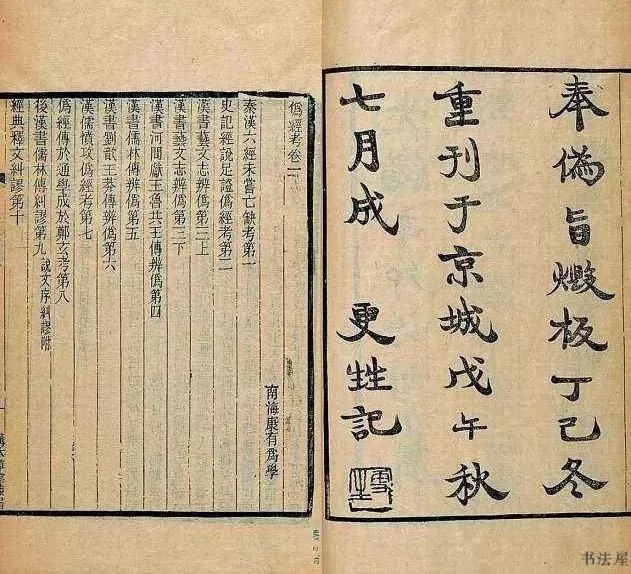 奉偽旨燬板丁巳冬
重刊于京城戊午秋
七月成 更甡記
僞經考卷一
南海康有爲學
秦漢六經未嘗亡缺考第一
史記經說足證僞經考第二
漢書藝文志辨僞第三上
漢書藝文志辨僞第三下
漢書河間獻王魯共王傳辨僞第四
漢書儒林傳辨僞第五
漢書劉歆王莽傳辨僞第六
漢儒憤攻僞經考第七
僞經傳於通學成於鄭玄考第八
後漢書儒林傳糾謬第九 說文序糾謬附
經典釋文糾謬第十
书法屋